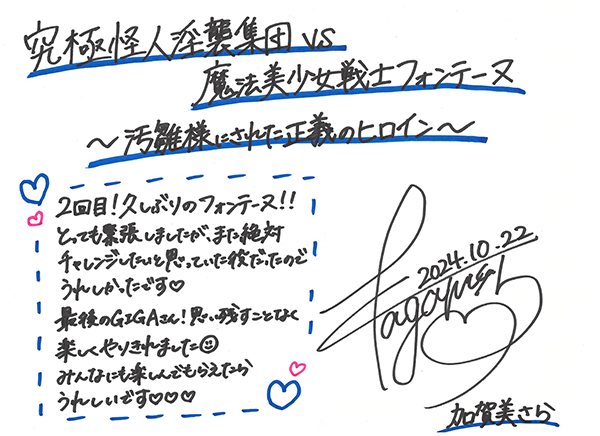 究極怪人淫襲集団 VS
魔法美少女戦士フォンテーヌ
〜汚雛様にされた正義のヒロイン〜
2回目！久しぶりのフォンテーヌ！！
とっても緊張しましたが、また絶対
チャレンジしたいと思っていた役だったので
うれしかったです♡
最後のGIGAさん！思い残すことなく
楽しくやりきれました☺
みんなにも楽しんでもらえたら
うれしいです♡♡♡
2024.10.22
加賀美さら